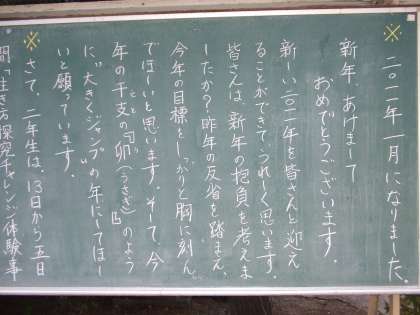 ※ 二〇一一年一月になりました。
新年、あけまして
おめでとうございます。
新しい二〇一一年を皆さんと迎え
ることができて、うれしく思います。
皆さんは、新年の抱負を考えま
したか？昨年の反省を踏まえ、
今年の目標をしっかりと胸に刻ん
でほしいと思います。そして、今
年の干支の「卯（うさぎ）」のよう
に、“大きくジャンプ”の年にしてほし
いと願っています。
※ さて、二年生は、13日から五日
間「生き方探究チャレンジ体験事